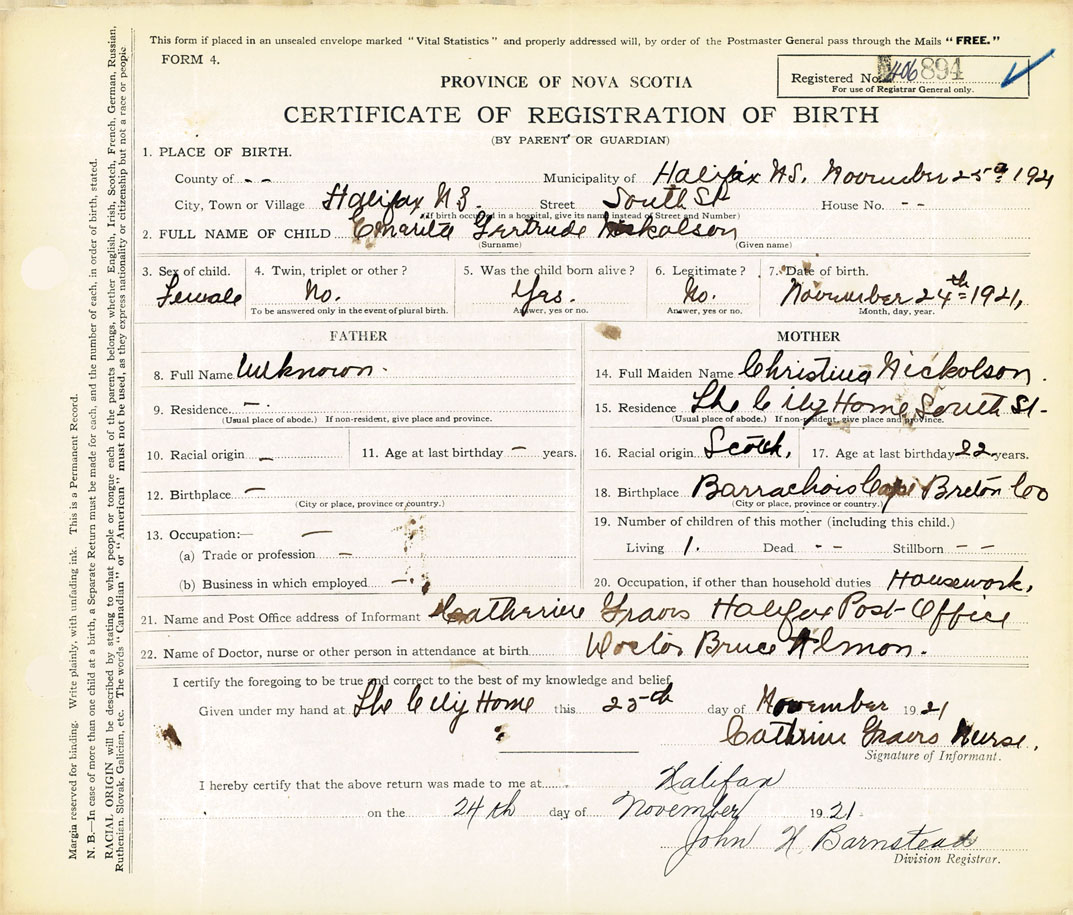 This form if placed in an unsealed envelope marked "Vital Statistics" and properly addressed will, by order of the Postmaster General pass through the Mails "FREE."
FORM 4.
PROVINCE OF NOVA SCOTIA
Registered No. 406894
For use of Registrar General only.
CERTIFICATE OF REGISTRATION OF BIRTH
(BY PARENT OR GUARDIAN)
1. PLACE OF BIRTH.
County of - - Municipality of Halifax NS. November 25th 1921
City, Town or Village Halifax N S. Street South St House No. - -
(If birth occurred in a hospital, give its name instead of Street and Number)
2. FULL NAME OF CHILD Gertrude Nickolson
(Surname) (Given name)
3. Sex of child. 4. Twin, triplet or other? 5. Was the child born alive? 6. Legitimate? 7. Date of birth.
Female No. Yes. No. November 24th 1921,
To be answered only in the event of plural birth. Answer, yes or no. Answer, yes or no. Month, day, year.
FATHER
8. Full Name Unknown.
9. Residence -
(Usual place of abode.) If non-resident, give place and province.
10. Racial origin - 11. Age at last birthday - years.
12. Birthplace -
(City or place, province or country.)
13. Occupation:— —
(a) Trade or profession —
(b) Business in which employed —
MOTHER
14. Full Maiden Name Christina Nickolson.
15. Residence The City Home, South St-
(Usual place of abode.) If non-resident, give place and province.
16. Racial origin Scotch, 17. Age at last birthday 22 years.
18. Birthplace Barrachois Cape Breton Co
(City or place, province or country.)
19. Number of children of this mother (including this child.)
Living 1. Dead - - Stillborn - -
20. Occupation, if other than household duties Housework,
21. Name and Post Office address of Informant Catherine Halifax Post-Office
22. Name of Doctor, nurse or other person in attendance at birth Doctor Bruce Almon.
I certify the foregoing to be true and correct to the best of my knowledge and belief.
Given under my hand at The City Home this 25th day of November 1921
Nurse.
Signature of Informant.
I hereby certify that the above return was made to me at Halifax
on the 24th day of November 1921
John H. Barnstead
Division Registrar.
Margin reserved for binding. Write plainly, with unfading ink. This is a Permanent Record.
N. B.—In case of more than one child at a birth, a Separate Return must be made for each, and the number of each, in order of birth, stated.
RACIAL ORIGIN will be described by stating to what people or tongue each of the parents belongs, whether English, Irish, Scotch, French, German, Russian,
Ruthenian, Slovak, Galician, etc. The words "Canadian" or "American" must not be used, as they express nationality or citizenship but not a race or people